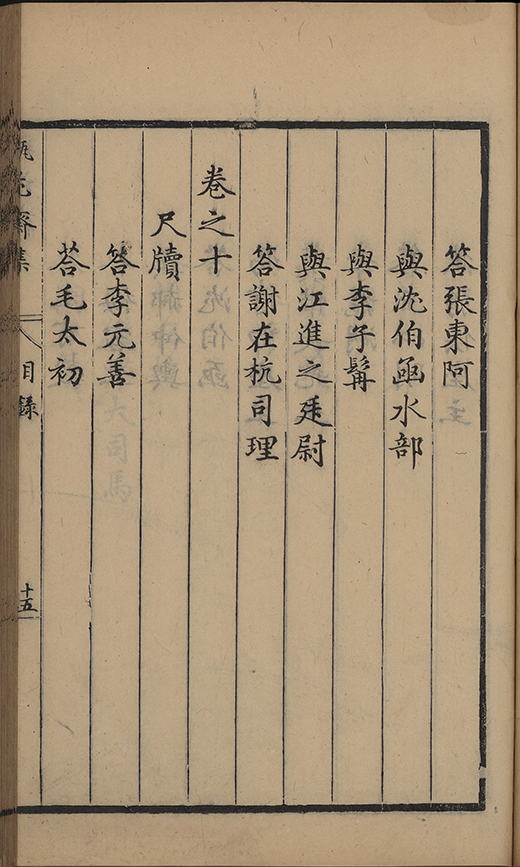 答張東阿
與沈伯函水部
與李子髯
與江進之廷尉
答謝在杭司理
卷之十
尺牘
答李元善
荅毛太初
齋集
目錄
十五